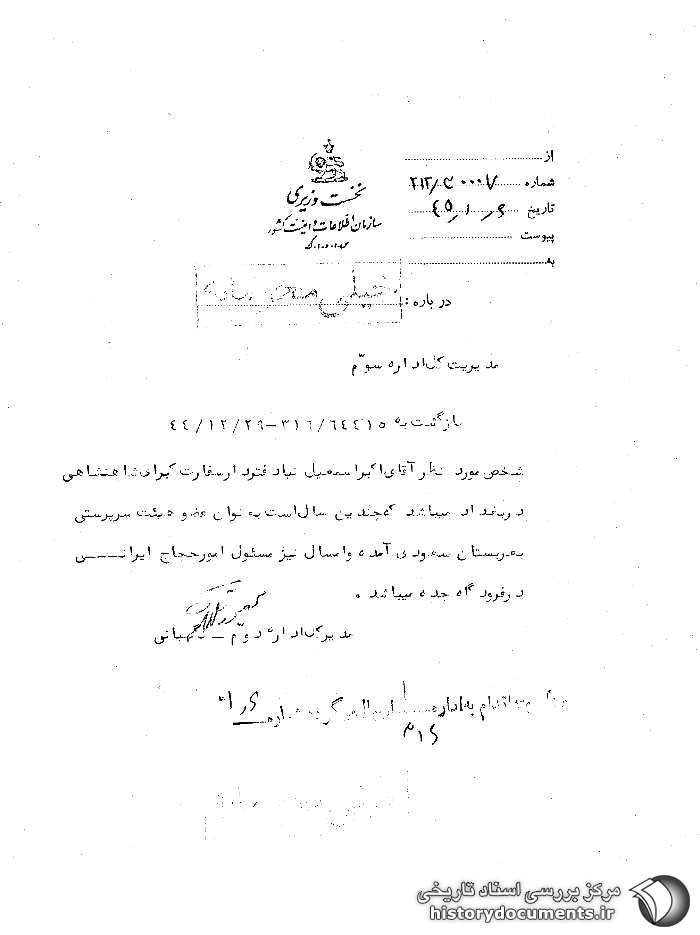 نخست وزیری
سازمان اطلاعات و امنیت کشور
س.ا.و.ا.ک
از
شماره ۲۱۲/۳۰۰۰۷
تاریخ ۴۵/۱/۶
پیوست
به
درباره :
خیلی محرمانه
مدیریت کل اداره سوّم
بازگشت به ۳۱۶/۶۴۴۱۵-۴۴/۱۲/۲۹
شخص مورد نظر آقای اکبر اسمعیل نیاد فترد ار سفارت کبرای شاهنشاهی
در بغداد میباشد که چندین سال است به عنوان عضو هیئت سرپرستی
به عربستان سعودی آمده و امسال نیز مسئول امور حجاج ایرانی
در فرودگاه جده میباشد .
مدیر کل اداره دوّم – کهبانی
اقدام به اداره ارسال گردد شماره
۳۱۶
مرکز بررسی اسناد تاریخی
historydocuments.ir